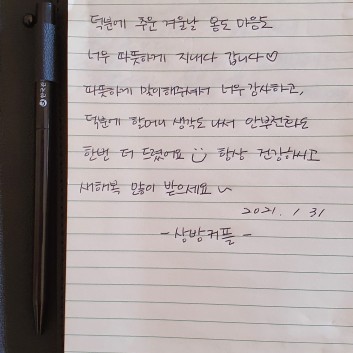 덕분에 추운 겨울날 몸도 마음도
너무 따뜻하게 지내다 갑니다♡
따뜻하게 맞이해주셔서 너무 감사하고,
덕분에 할머니 생각도 나서 안부전화도
한번 더 드렸어요 :) 항상 건강하시고
새해복 많이 받으세요~
2021. 1 31
- 상방커플 -